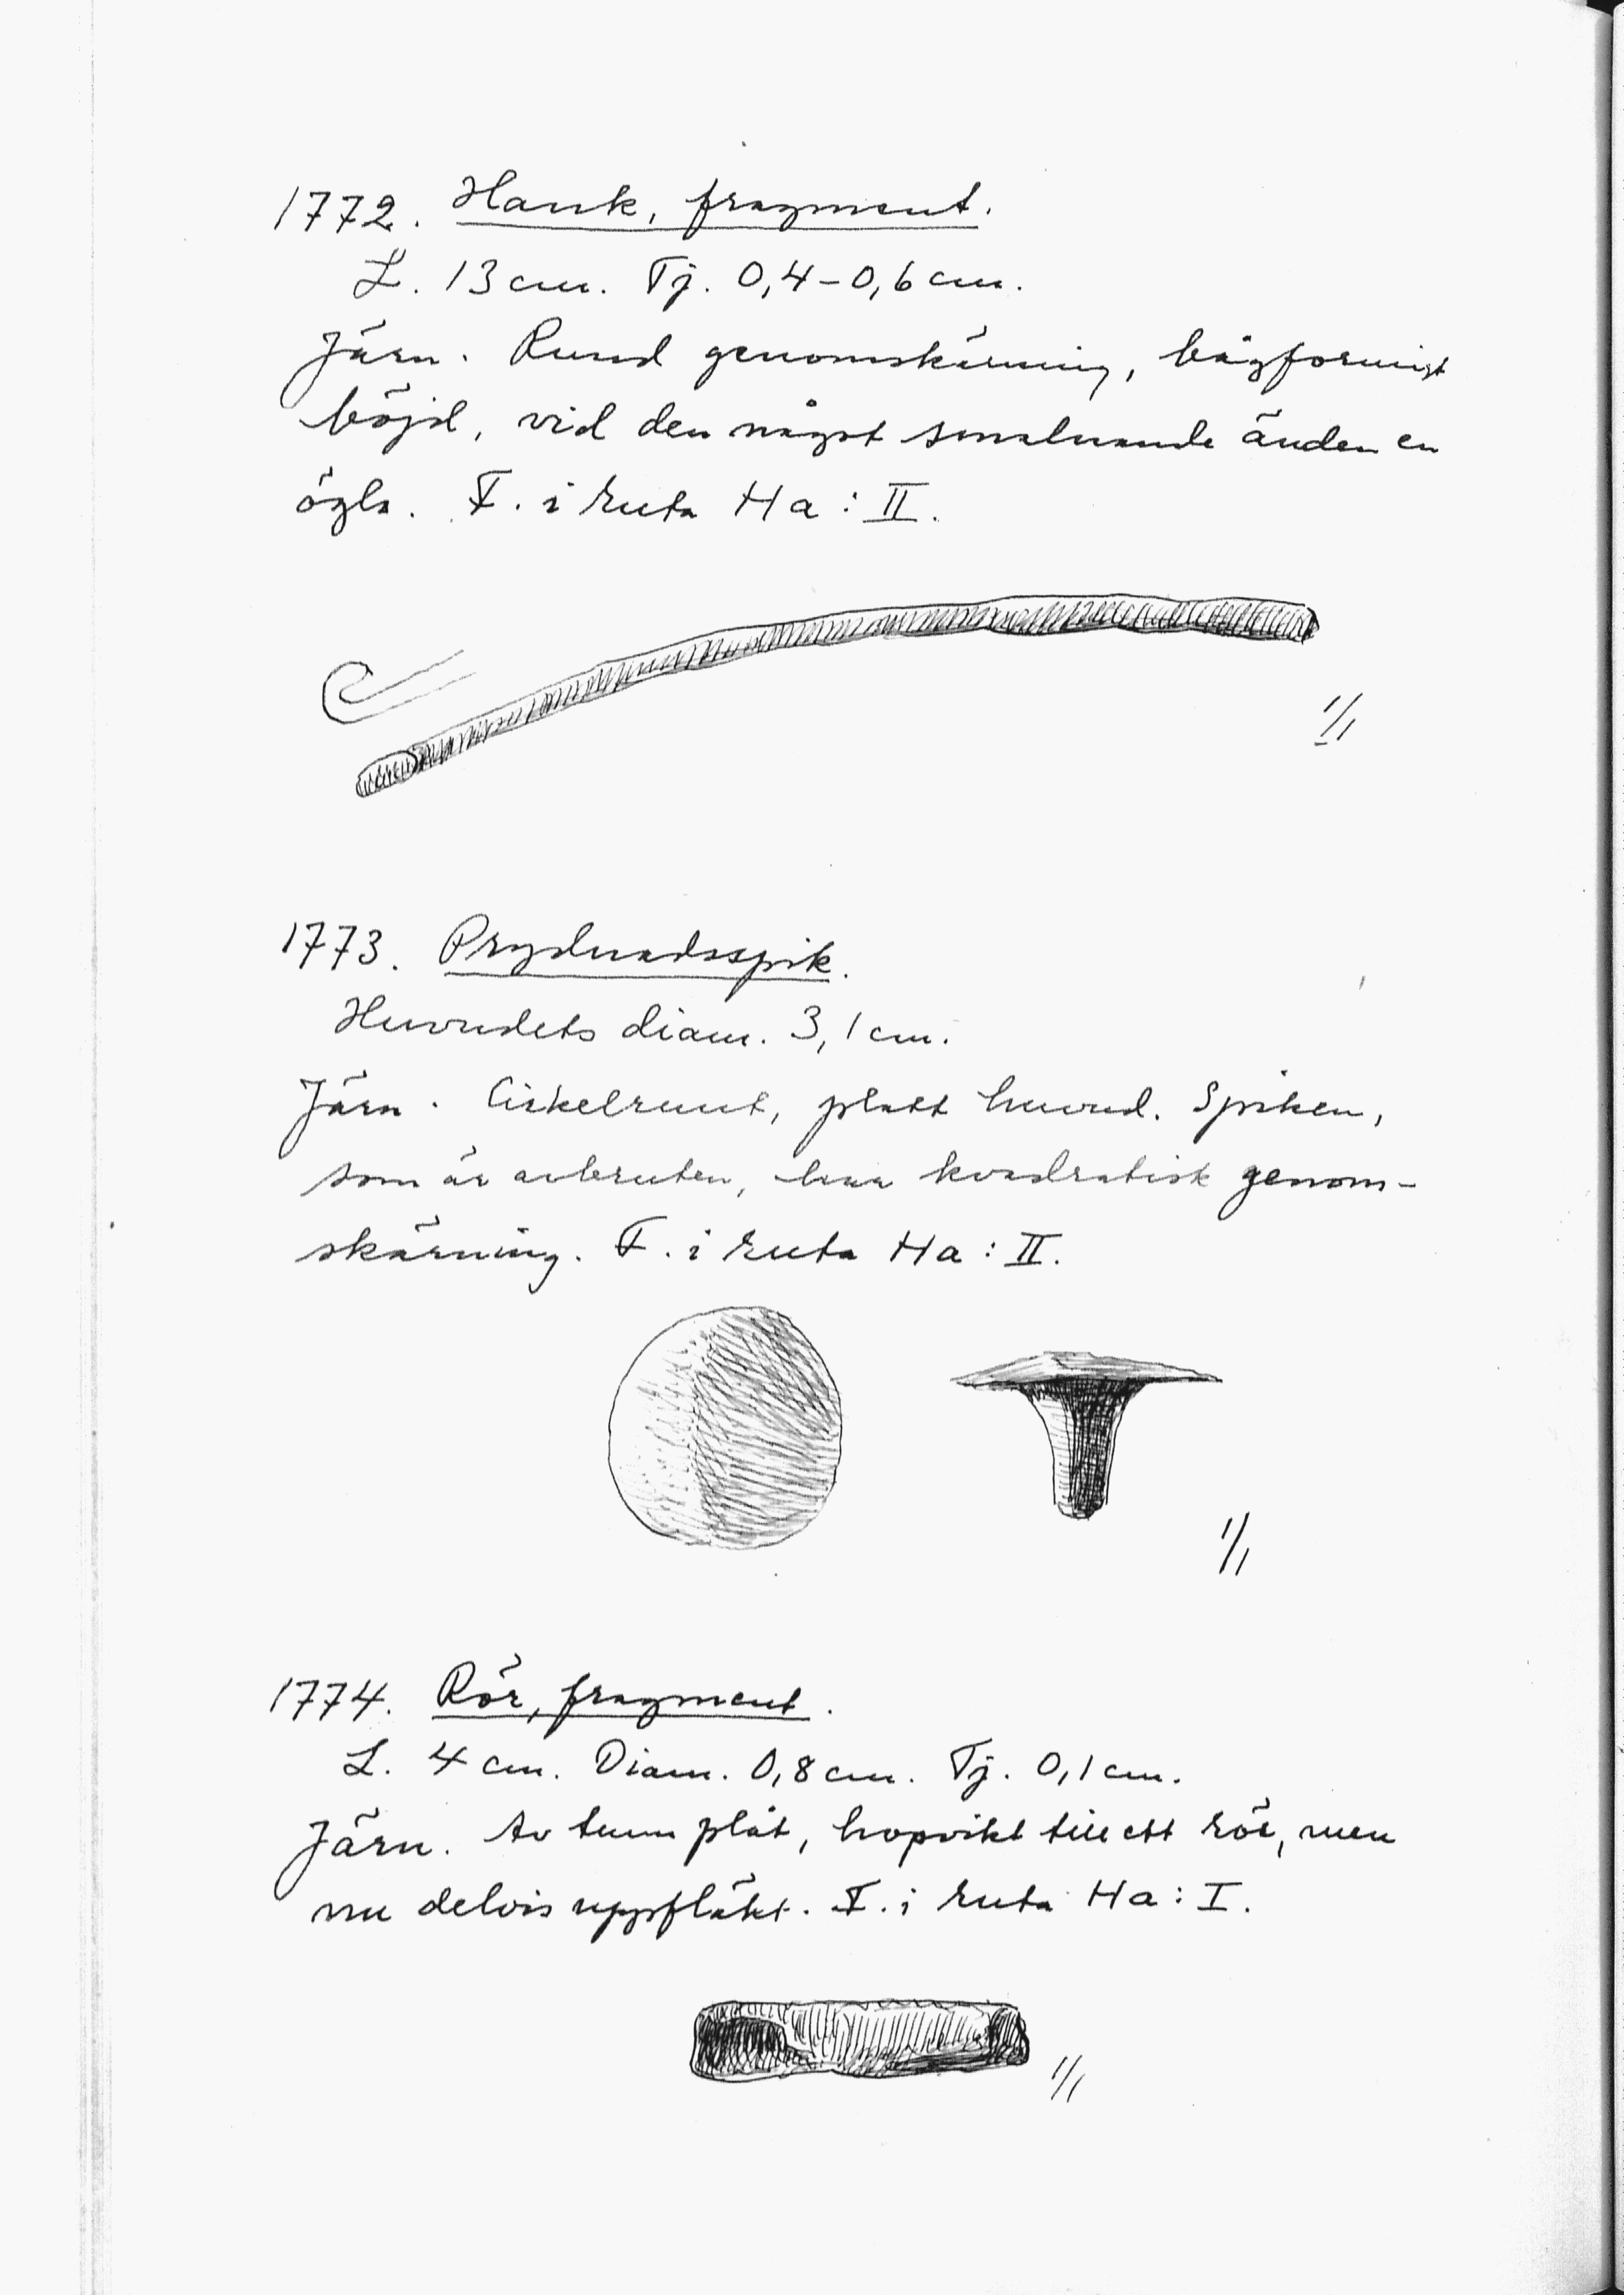 1772. Hank, fragment.
L. 13 cm. Tj. 0,4–0,6 cm.
Järn. Rund genomskärning, bågformigt
böjd, vid den något smalnande änden en
ögla. F. i ruta Ha : II.
1/1
1773. Prydnadsspik.
Huvudets diam. 3,1 cm.
Järn. Cirkelrunt, platt huvud. Spiken,
som är avbruten, har kvadratisk genom-
skärning. F. i ruta Ha : II.
1/1
1774. Rör, fragment.
L. 4 cm. Diam. 0,8 cm. Tj. 0,1 cm.
Järn. Av tunn plåt, hopvikt till ett rör, men
nu delvis uppfläkt. F. i ruta Ha : I.
1/1